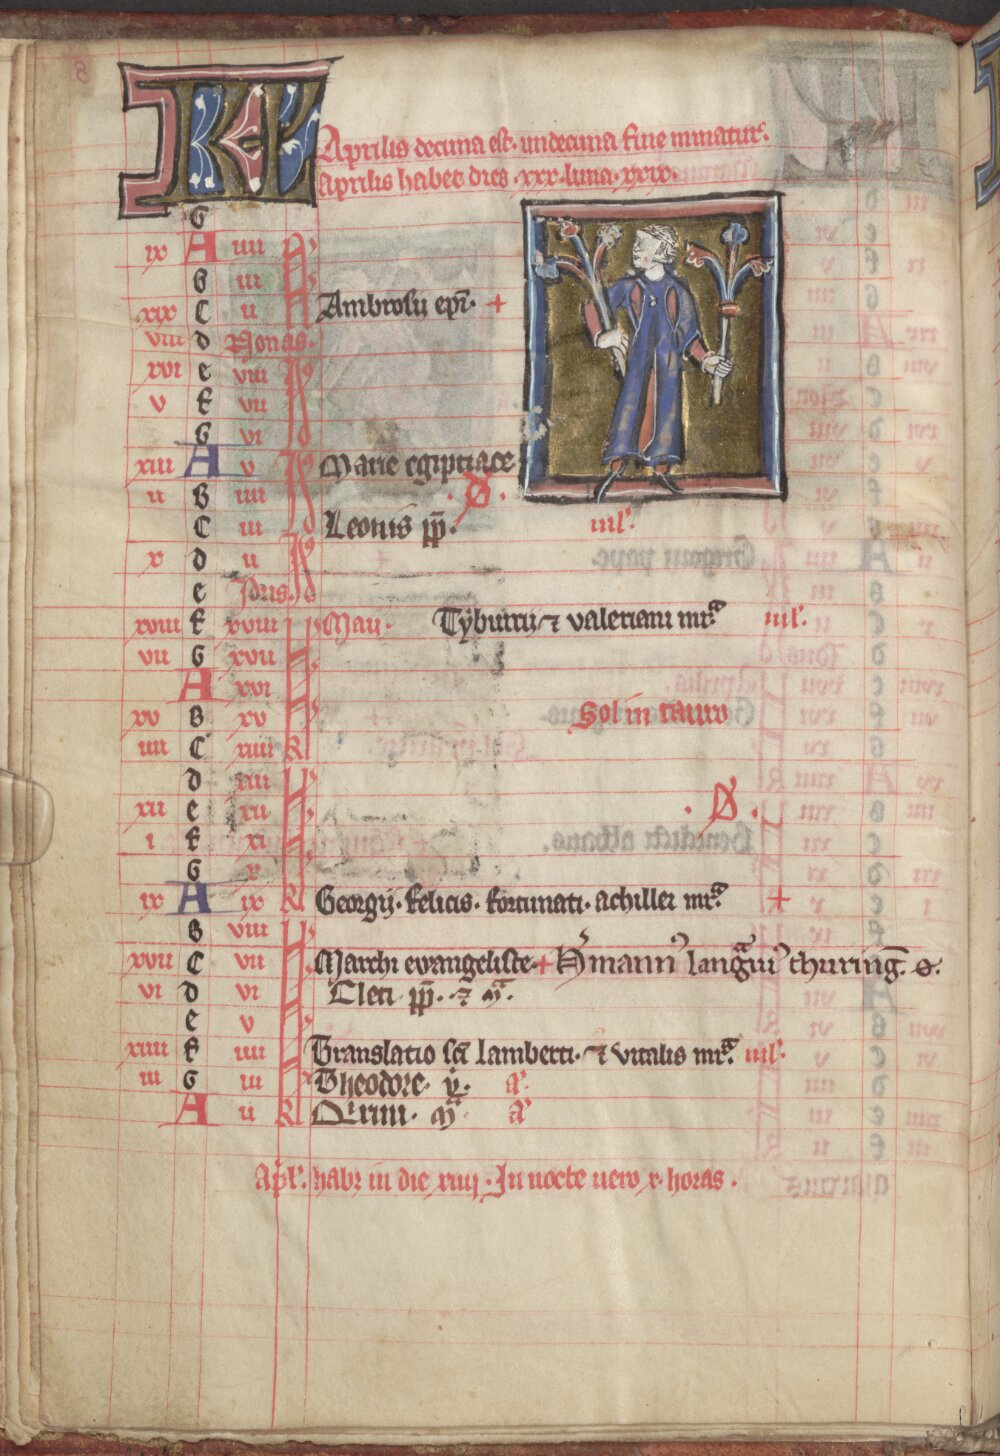 KL
Aprilis decima est. undecima fine minatur.
Aprilis habet dies .xxx. luna .xxix.
G
ix A iiii N
B iii
xix C ii N Ambrosii epi. +
viii d Nonas.
xvi e viii
v f vii
G vi
xiii A v Marie egiptiace
ii B iiii .D.
C iii Leonis pp. iiil.
x d ii
e Idus.
xviii f xviii Maii. Tyburtii ⁊ valeriani mr. iiil.
vii G xvii
A xvi
xv B xv Sol in tauro
iiii C xiiii
d xiii
xii e xii .D.
i f xi
G x
ix A ix Georgii. felicis. fortunati. achillei mr. +
B viii
xvii C vii Marchi evangeliste + Hmann langrui thuring. o.
vi d vi Cleti pp. ⁊ m.
e v
xiiii f iiii Translatio sci lamberti. ⁊ vitalis mr. iiil.
iii G iii Theodore. v.
A ii Quirini. m.
Apl. habt in die xiiij. In nocte uero x. horas.